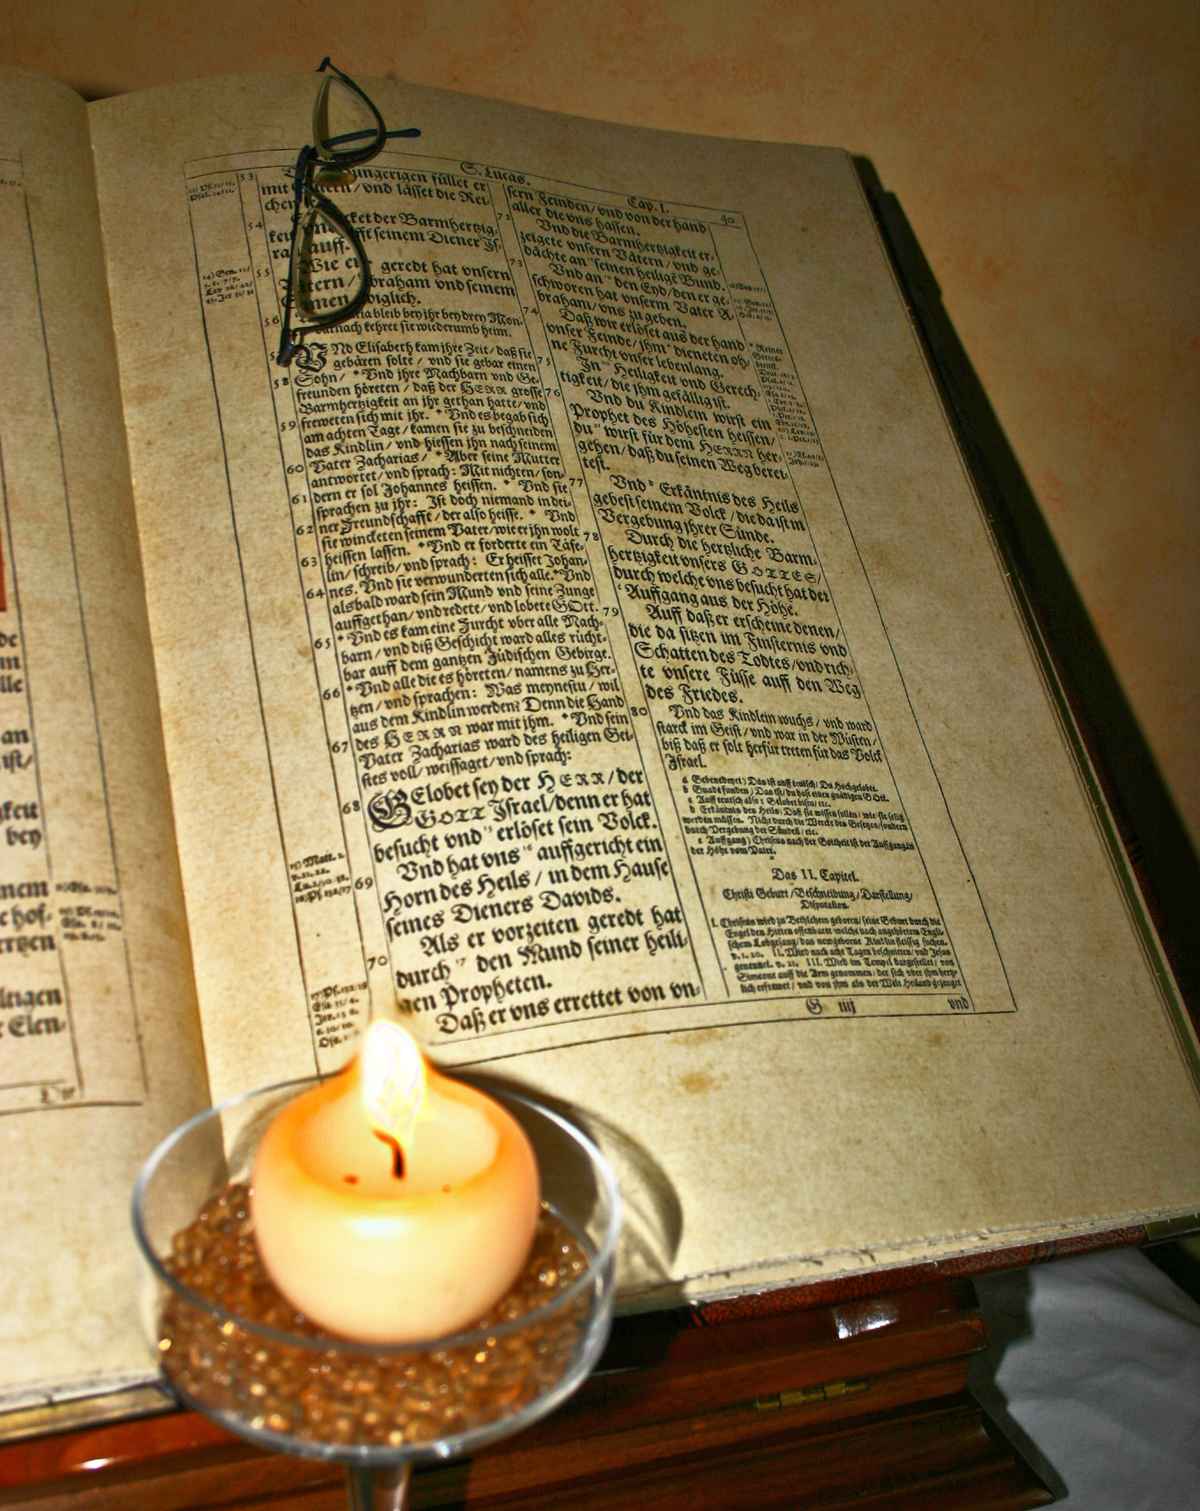 S. Lucas. Cap. I. 40
53 ungerigen füllet er
mit vnd lässet die Rei-
54 cket der Barmhertzig-
keit seinem Diener Js-
auff.
55 Wie er geredt hat vnsern
Vätern / Abraham vnd seinem
Samen ewiglich.
56 Maria bleib bey jhr bey drey Mon-
darnach kehret sie wiederumb heim.
VNd Elisabeth kam jhre Zeit / daß sie
gebären solte / vnd sie gebar einen
58 Sohn / * Vnd jhre Nachbarn vnd Ge-
freunden höreten / daß der HERR grosse
Barmhertzigkeit an jhr gethan hatte / vnd
59 freweten sich mit jhr. * Vnd es begab sich
am achten Tage / kamen sie zu beschneiden
das Kindlin / vnd hiessen jhn nach seinem
60 Vater Zacharias / * Aber seine Mutter
antwortet / vnd sprach: Mit nichten / son-
61 dern er sol Johannes heissen. * Vnd sie
sprachen zu jhr: Jst doch niemand in dei-
62 ner Freundschafft / der also heisse. * Vnd
sie wincketen seinem Vater / wie er jhn wolt
63 heissen lassen. * Vnd er forderte ein Täfe-
lin / schreib / vnd sprach: Er heisset Johan-
64 nes. Vnd sie verwunderten sich alle. * Vnd
alsbald ward sein Mund vnd seine Zunge
auffgethan / vnd redete / vnd lobete GOtt.
65 * Vnd es kam eine Furcht vber alle Nach-
barn / vnd diß Geschicht ward alles rücht-
bar auff dem gantzen Jüdischen Gebirge.
66 * Vnd alle die es höreten / namens zu Her-
tzen / vnd sprachen: Was meynestu / wil
aus dem Kindlin werden? Denn die Hand
67 des HERRN war mit jhm. * Vnd sein
Vater Zacharias ward des heiligen Gei-
stes voll / weissaget / vnd sprach:
68 GElobet sey der HERR / der
GOTT Jsrael / denn er hat
besucht vnd erlöset sein Volck.
69 Vnd hat vns auffgericht ein
Horn des Heils / in dem Hause
seines Dieners Davids.
70 Als er vorzeiten geredt hat
durch den Mund seiner heili-
gen Propheten.
Daß er vns errettet von vn-
sern Feinden / vnd von der hand
aller die vns hassen.
72 Vnd die Barmhertzigkeit er-
zeigete vnsern Vätern / vnd ge-
dächte an seinen heilige Bund.
73 Vnd an den Eyd / den er ge-
schworen hat vnserm Vater A-
braham / vns zu geben.
74 Daß wir erlöset aus der hand
vnser Feinde / jhm dieneten oh-
ne Furcht vnser lebenlang.
75 Jn Heiligkeit vnd Gerech-
tigkeit / die jhm gefällig ist.
76 Vnd du Kindlein wirst ein
Prophet des Höhesten heissen /
du wirst für dem HERRN her-
gehen / daß du seinen Weg berei-
test.
77 Vnd Erkäntnis des Heils
gebest seinem Volck / die da ist in
Vergebung jhrer Sünde.
78 Durch die hertzliche Barm-
hertzigkeit vnsers GOTTES /
durch welche vns besucht hat der
Auffgang aus der Höhe.
79 Auff daß er erscheine denen /
die da sitzen im Finsternis vnd
Schatten des Todtes / vnd rich-
te vnsere Füsse auff den Weg
des Friedes.
80 Vnd das Kindlein wuchs / vnd ward
starck im Geist / vnd war in der Wüsten /
biß daß er solt herfür treten für das Volck
Jsrael.
a Gebenedeyet) Das ist auff teutsch / Du Hochgelobte.
b Gnade funden / Das ist / du hast einen gnädigen GOtt.
c Auff teutsch also: Gelobet bistu / etc.
d Erkäntnis des Heils) Daß sie wissen sollen / wie sie selig
werden müssen. Nicht durch die Wercke des Gesetzes / sondern
durch Vergebung der Sünden / etc.
e Auffgang) Christus nach der Gottheit ist der Auffgang in
der Höhe vom Vater.
Das II. Capitel.
Christi Geburt / Beschneidung / Darstellung /
Disputation.
I. Christus wird zu Bethlehem geboren / seine Geburt durch die
Engel den Hirten offenbaret welche nach angehörtem Engli-
schem Lobgesang / das newgeborne Kindlin fleissig suchen.
v. 1. 20. II. Wird nach acht Tagen beschnitten / vnd Jesus
genennet. v. 21. III. Wird im Tempel dargestellet / von
Simeone auff die Arm genommen / der sich vber jhm hertz-
lich erfrewet / vnd von jhm als der Welt Heiland gezeuget
G iiij vnd